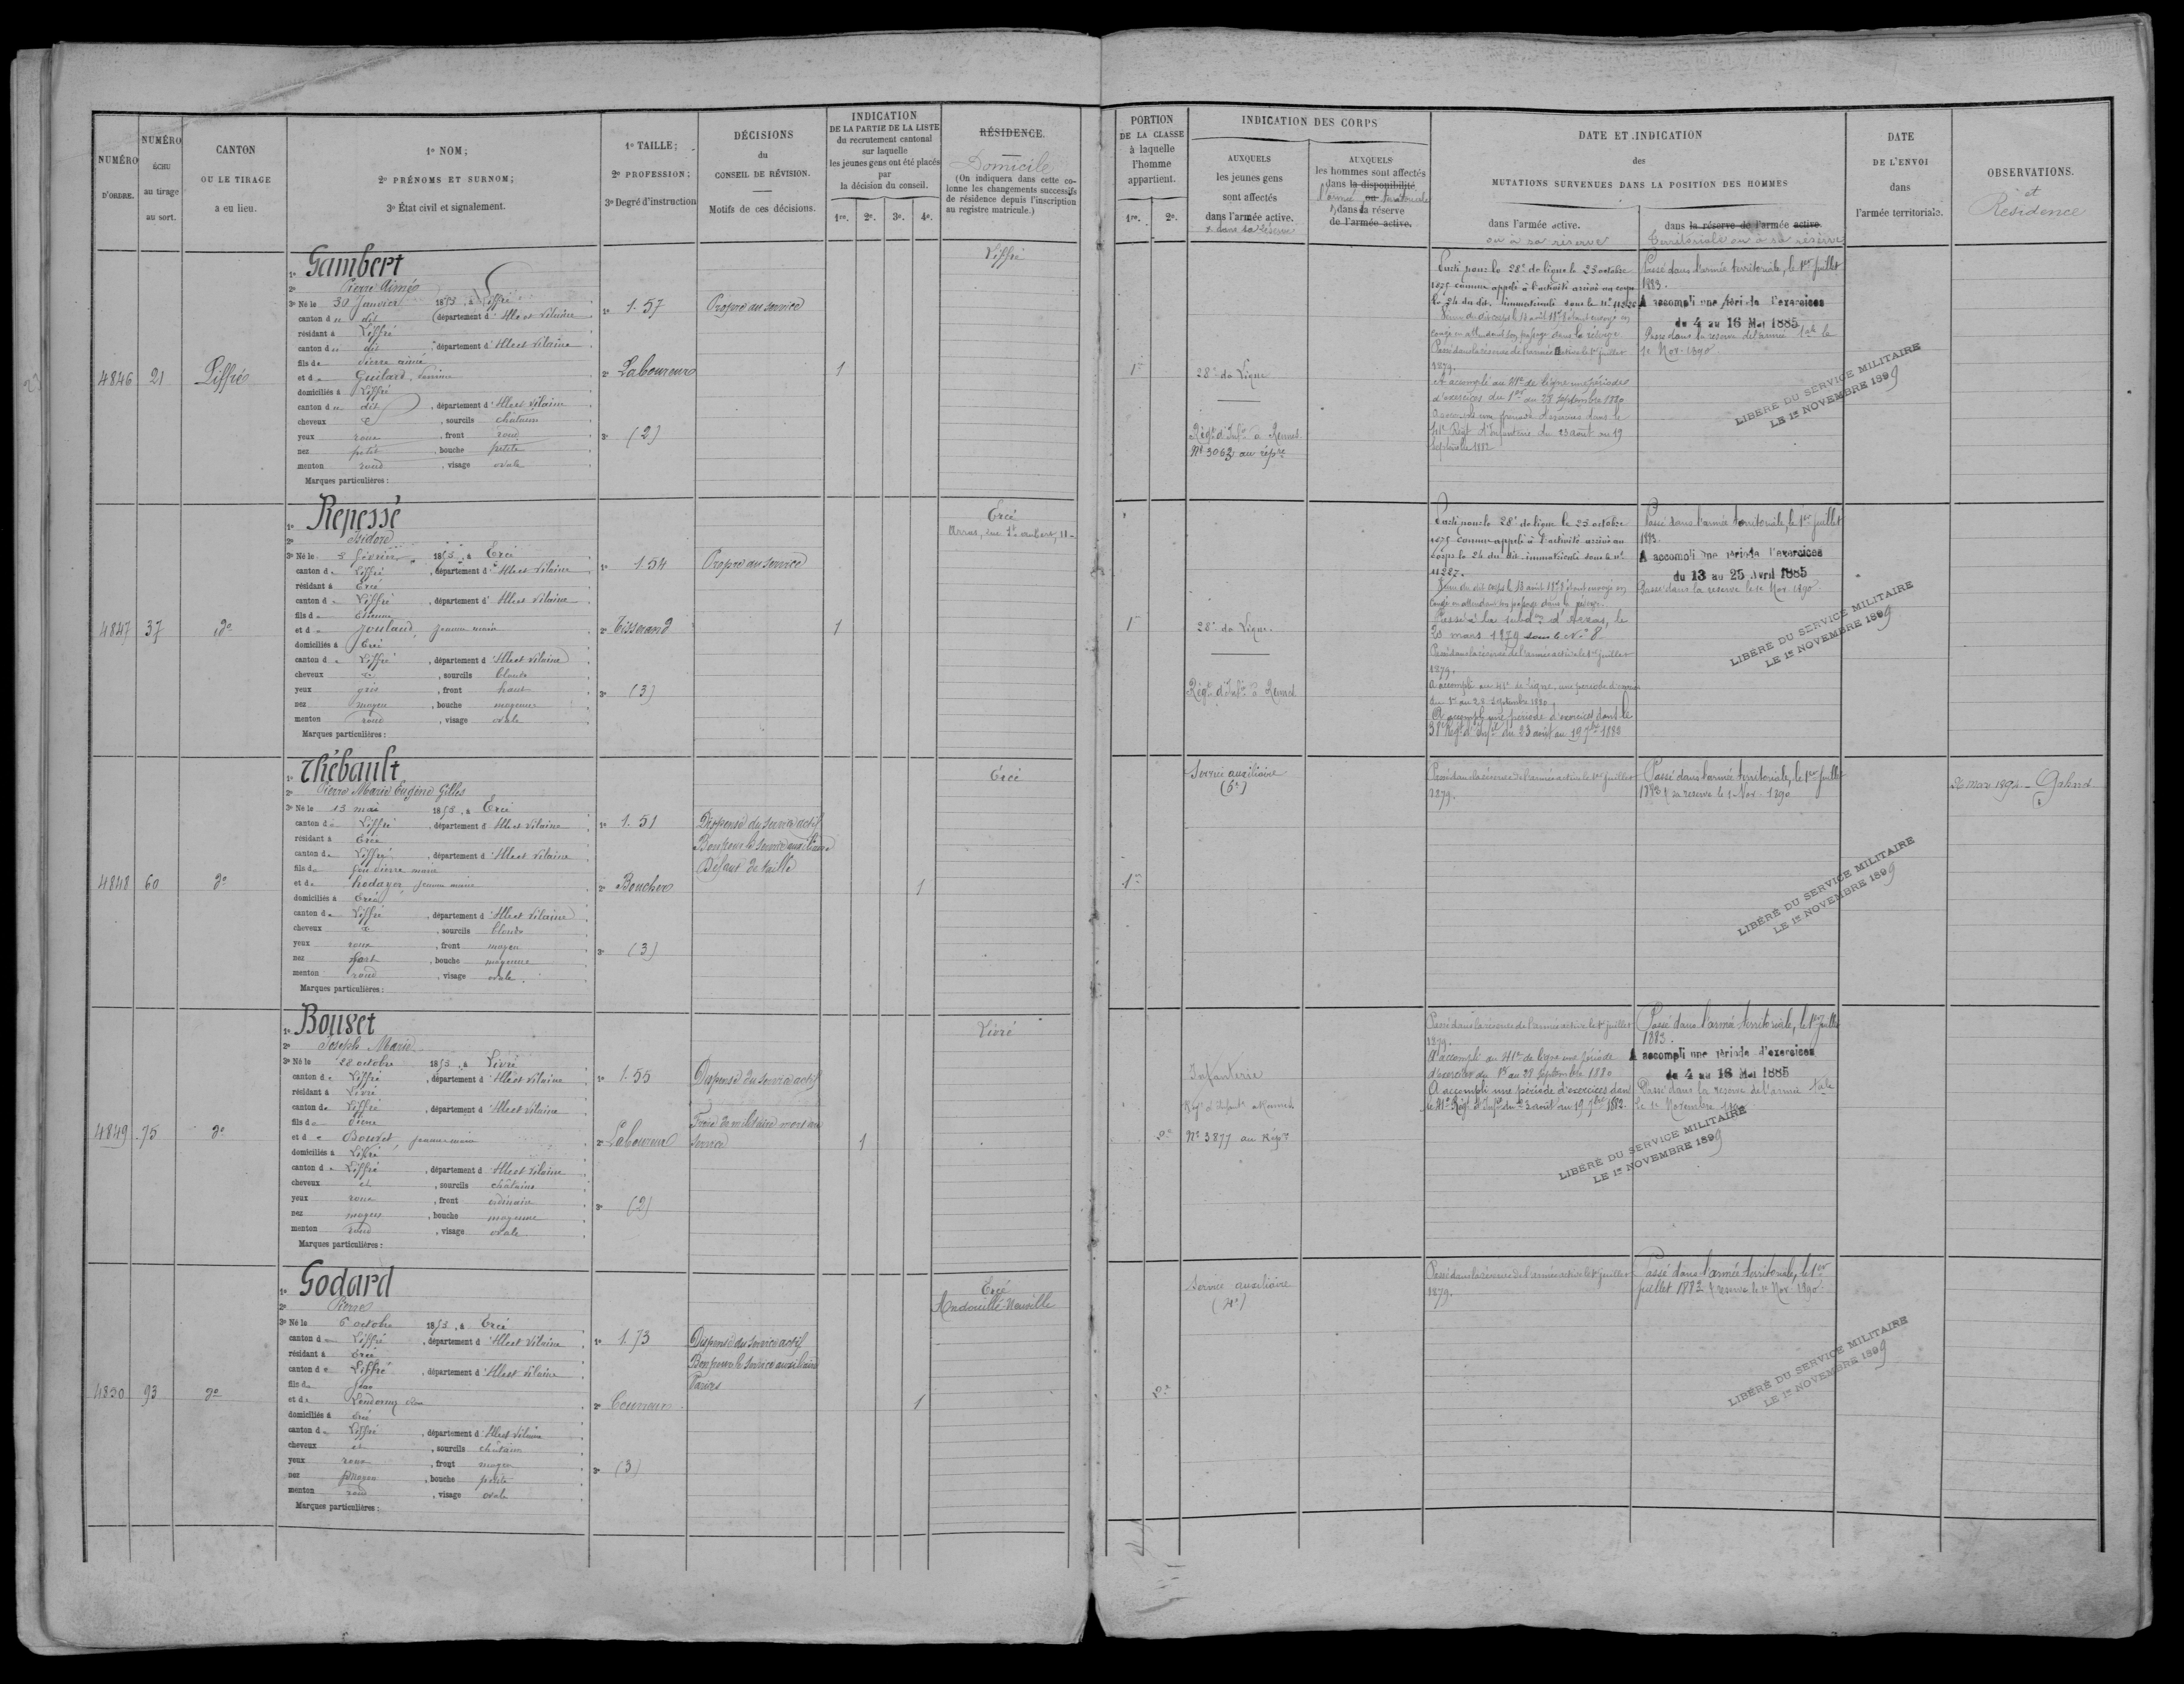 NUMÉRO
D'ORDRE.
NUMÉRO
ÉCHU
au tirage
au sort.
CANTON
OU LE TIRAGE
a eu lieu.
1º NOM;
2º PRÉNOMS ET SURNOM;
3º État civil et signalement.
1º TAILLE;
2º PROFESSION;
3º Degré d'instruction
DÉCISIONS
du
CONSEIL DE RÉVISION.
Motifs de ces décisions.
INDICATION
DE LA PARTIE DE LA LISTE
du recrutement cantonal
sur laquelle
les jeunes gens ont été placés
par
la décision du conseil.
1re. 2e. 3e. 4e.
RÉSIDENCE.
Domicile
(On indiquera dans cette co-
lonne les changements successifs
de résidence depuis l'inscription
au registre matricule.)
PORTION
DE LA CLASSE
à laquelle
l'homme
appartient.
1re. 2e.
INDICATION DES CORPS
AUXQUELS
les jeunes gens
sont affectés
dans l'armée active.
& dans sa réserve
AUXQUELS
les hommes sont affectés
dans la disponibilité
l'armée ou territoriale
& dans la réserve
de l'armée active.
DATE ET INDICATION
des
MUTATIONS SURVENUES DANS LA POSITION DES HOMMES
dans l'armée active.
ou à sa réserve
dans la réserve de l'armée active.
territoriale ou à sa réserve
DATE
DE L'ENVOI
dans
l'armée territoriale.
OBSERVATIONS.
et
Résidence
4846 21 Liffré
1º Gambert
2º Pierre Aimé
3º Né le 30 Janvier 1853, à Liffré
canton d u dit département d'Ille et Vilaine
résidant à Liffré
canton d u dit département d'Ille et Vilaine
fils de Pierre aimé
et d e Guilard
domiciliés à Liffré
canton d u dit, département d'Ille et Vilaine
cheveux et, sourcils châtain
yeux roux, front rond
nez petit, bouche petite
menton rond, visage ovale
Marques particulières:
1º 1.57
2º Laboureur
3º (2)
Propre au service
1
Liffré
1re
28e de Ligne
Régt d'Infie à Rennes
Nº 3062 au répre
Parti pour le 28e de ligne le 23 octobre
1875 comme appelé à l'activité arrivé au corps
le 24 du dit, immatriculé sous le Nº
congé en attendant son passage dans la réserve
Passé dans la réserve de l'armée active le 1er juillet
1879.
A accompli au 41e de ligne une période
d'exercices du 1er au 28 septembre 1880
41e Régt d'Infanterie du 23 août au 19
septembre 1882
Passé dans l'armée territoriale, le 1er Juillet
1883.
A accompli une période d'exercices
du 4 au 16 Mai 1885
Passé dans la réserve de l'armée tale le
1er Nov. 1890
LIBÉRÉ DU SERVICE MILITAIRE
LE 1er NOVEMBRE 1899
4847 37 do
1º Repessé
2º Isidore
3º Né le 8 février 1853, à Ercé
canton d e Liffré, département d'Ille et Vilaine
résidant à Ercé
canton d e Liffré, département d'Ille et Vilaine
fils d e Etienne
et d e Poulard, jeanne marie
domiciliés à Ercé
canton d e Liffré, département d'Ille et Vilaine
cheveux et, sourcils blonds
yeux gris, front haut
nez moyen, bouche moyenne
menton rond, visage ovale
Marques particulières:
1º 1.54
2º Tisserand
3º (3)
Propre au service
1
Ercé
Arras, rue St aubert, 11
1re
28e de Ligne.
Régt d'Infie à Rennes
Parti pour le 28e de ligne le 23 octobre
1875 comme appelé à l'activité arrivé au
corps le 24 du dit immatriculé sous le nº
11227.
congé en attendant son passage dans la réserve.
Passé à la subdon d'Arras, le
20 mars 1879 sous le Nº 8
Passé dans la réserve de l'armée active le 1er juillet
1879.
A accompli au 41e de ligne une période d'exercices
du 1er au 28 septembre 1880
A accompli une période d'exercices dans le
Régt d'Infie du 23 août au 19 7bre 1882
Passé dans l'armée territoriale, le 1er Juillet
1883.
A accompli une période d'exercices
du 13 au 25 Avril 1885
Passé dans la réserve le 1er Nov. 1890
LIBÉRÉ DU SERVICE MILITAIRE
LE 1er NOVEMBRE 1899
4848 60 do
1º Thébault
2º Pierre Marie Eugène Gilles
3º Né le 13 mai 1853, à Ercé
canton d e Liffré, département d'Ille et Vilaine
résidant à Ercé
canton d e Liffré, département d'Ille et Vilaine
fils d e feu Pierre marie
et d e jeanne marie
domiciliés à Ercé
canton d e Liffré, département d'Ille et Vilaine
cheveux et, sourcils blonds
yeux roux, front moyen
nez fort, bouche moyenne
menton rond, visage ovale
Marques particulières:
1º 1.51
2º Boucher
3º (3)
Dispensé du service actif
Bon pour le service auxiliaire
Défaut de taille
1
Ercé
1re
Service auxiliaire
Passé dans la réserve de l'armée active le 1er juillet
1879.
Passé dans l'armée territoriale, le 1er Juillet
1883 & sa réserve le 1er Nov. 1890
26 Mars 1892
LIBÉRÉ DU SERVICE MILITAIRE
LE 1er NOVEMBRE 1899
4849 75 do
1º Bouvet
2º Joseph Marie
3º Né le 28 octobre 1853, à Livré
canton d e Liffré, département d'Ille et Vilaine
résidant à Livré
canton d e Liffré, département d'Ille et Vilaine
fils d e Pierre
et d e Bouvet, jeanne marie
domiciliés à Livré
canton d e Liffré, département d'Ille et Vilaine
cheveux et, sourcils châtains
yeux roux, front ordinaire
nez moyen, bouche moyenne
menton rond, visage ovale
Marques particulières:
1º 1.55
2º Laboureur
3º (2)
Dispensé du service actif
Frère de militaire mort au
service
1
Livré
2e
Infanterie
Nº 3877 au Répre
Passé dans la réserve de l'armée active le 1er juillet
1879.
A accompli au 41e de ligne une période
d'exercices du 1er au 28 septembre 1880
A accompli une période d'exercices dans
le 41e Régt d'Infie du 23 août au 19 7bre 1882.
Passé dans l'armée territoriale, le 1er Juillet
1883.
A accompli une période d'exercices
du 4 au 16 Mai 1885
Passé dans la réserve de l'armée tale
le 1er Novembre 1890
LIBÉRÉ DU SERVICE MILITAIRE
LE 1er NOVEMBRE 1899
4850 93 do
1º Godard
2º Pierre
3º Né le 6 octobre 1853, à Ercé
canton d e Liffré, département d'Ille et Vilaine
résidant à Ercé
canton d e Liffré, département d'Ille et Vilaine
fils d e Jean
et d e
domiciliés à Ercé
canton d e Liffré, département d'Ille et Vilaine
cheveux et, sourcils châtain
yeux roux, front moyen
nez moyen, bouche petite
menton rond, visage ovale
Marques particulières:
1º 1.73
2º Couvreur
3º (3)
Dispensé du service actif
Bon pour le service auxiliaire
Varices
1
Ercé
Andouillé-Neuville
2e
Service auxiliaire
Passé dans la réserve de l'armée active le 1er juillet
1879.
Passé dans l'armée territoriale, le 1er
juillet 1883 & réserve le 1er Nov. 1890
LIBÉRÉ DU SERVICE MILITAIRE
LE 1er NOVEMBRE 1899